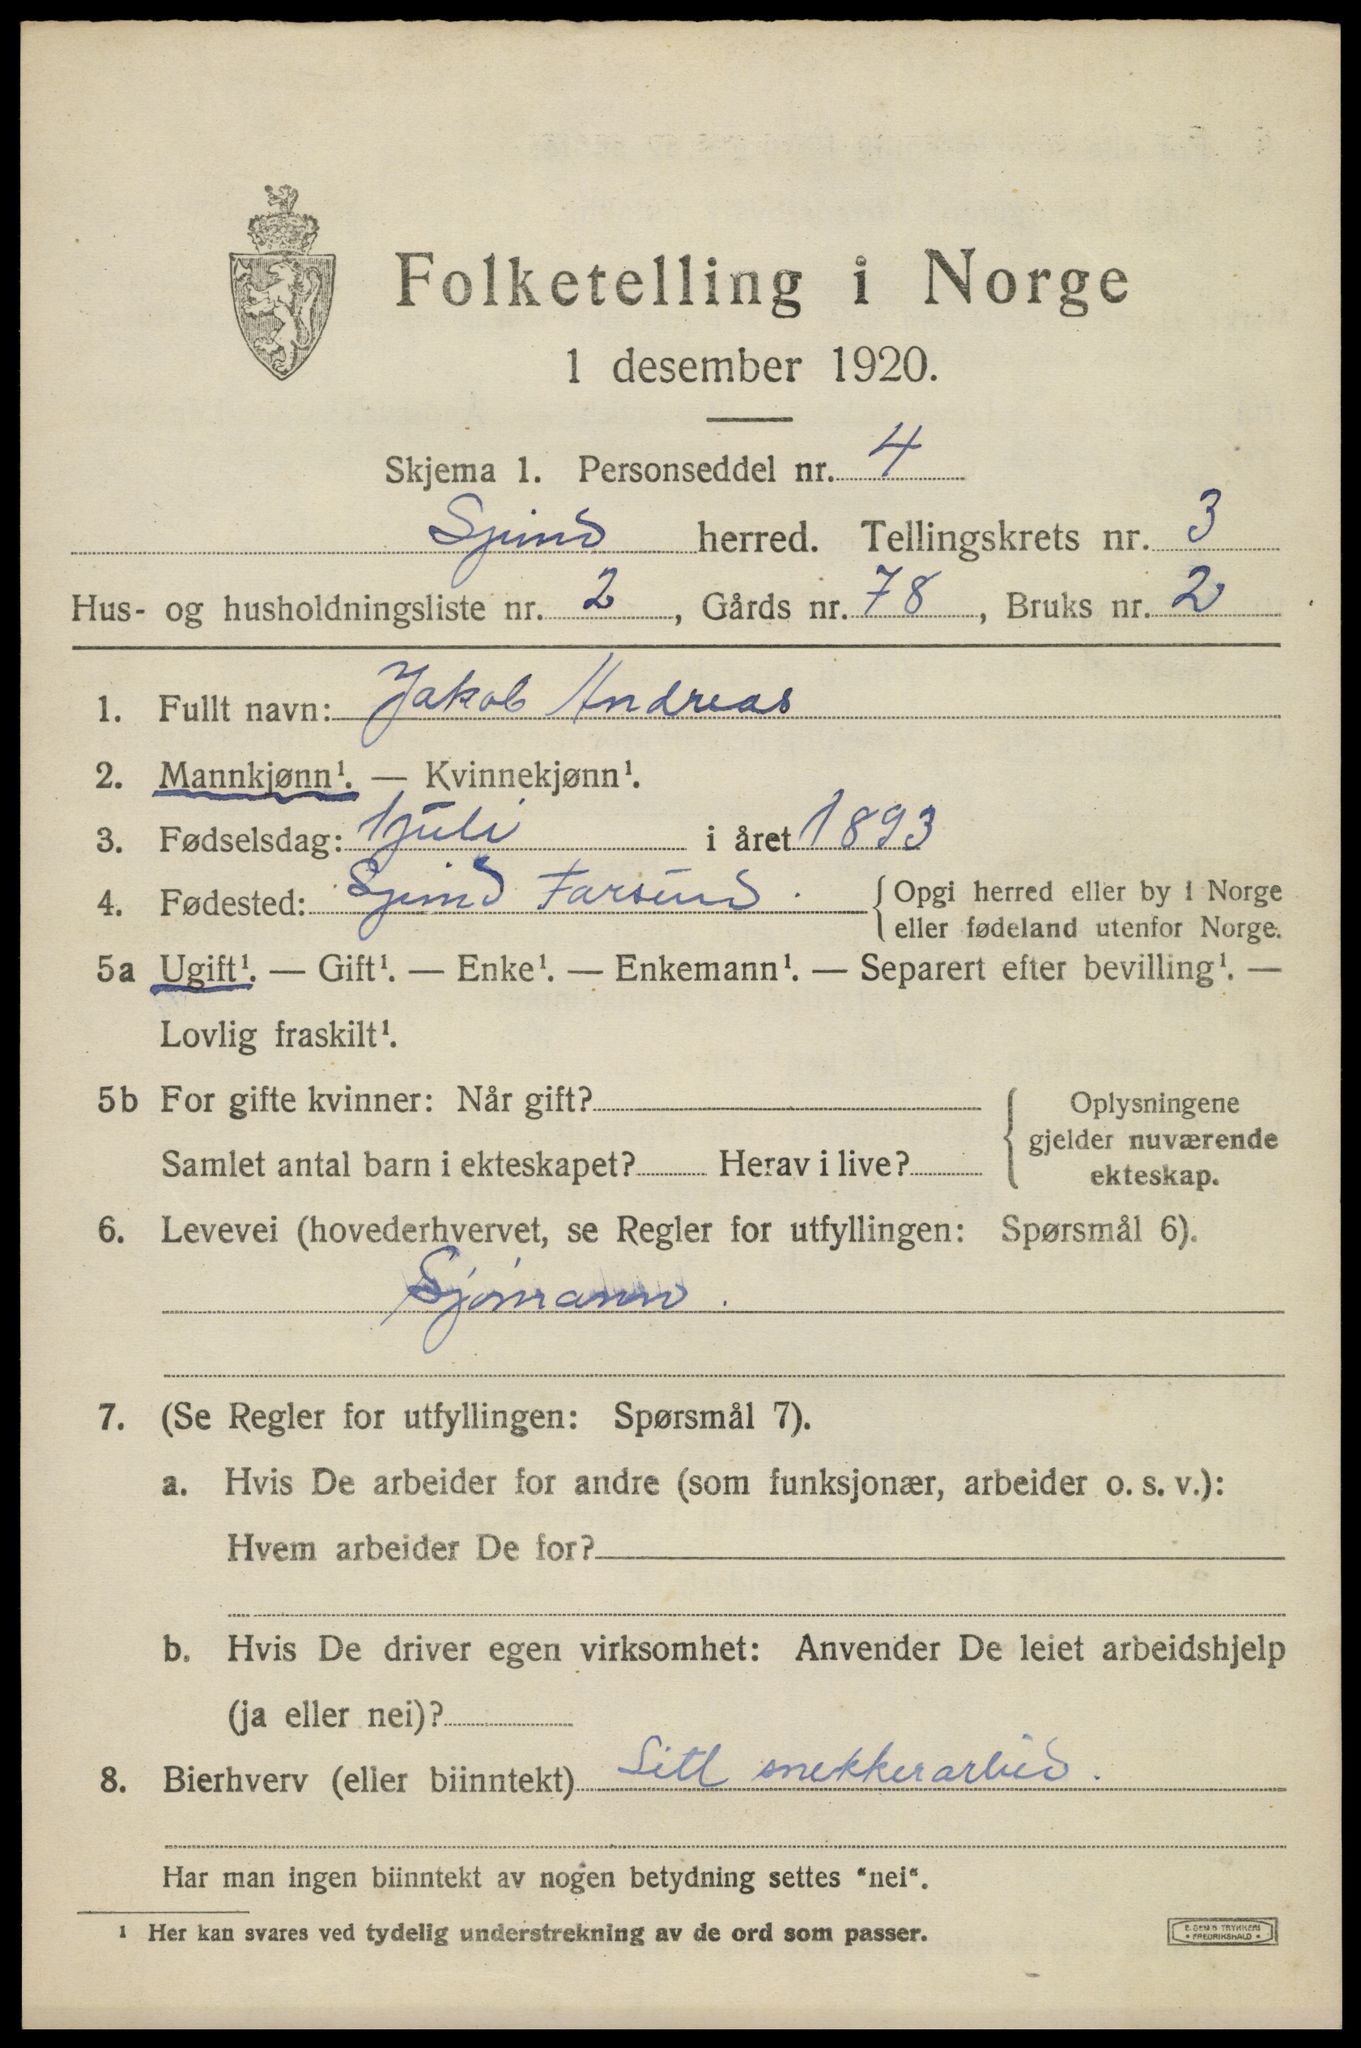 Folketelling i Norge
1 desember 1920.
Skjema 1. Personseddel nr. 4
Spind herred. Tellingskrets nr. 3
Hus- og husholdningsliste nr. 2, Gårds nr. 78, Bruks nr. 2
1. Fullt navn: Jakob Andreas
2. Mannkjønn¹. — Kvinnekjønn¹.
3. Fødselsdag: 1 juli i året 1893
4. Fødested: Spind Farsund. {Opgi herred eller by i Norge
eller fødeland utenfor Norge.
5a Ugift¹. — Gift¹. — Enke¹. — Enkemann¹. — Separert efter bevilling¹. —
Lovlig fraskilt¹.
5b For gifte kvinner: Når gift? Oplysningene
gjelder nuværende
Samlet antal barn i ekteskapet? Herav i live?
ekteskap.
6. Levevei (hovederhvervet, se Regler for utfyllingen: Spørsmål 6).
Sjømann.
7. (Se Regler for utfyllingen: Spørsmål 7).
a. Hvis De arbeider for andre (som funksjonær, arbeider o. s. v.):
Hvem arbeider De for?
b. Hvis De driver egen virksomhet: Anvender De leiet arbeidshjelp
(ja eller nei)?
8. Bierhverv (eller biinntekt) Litt snekkerarbeid.
Har man ingen biinntekt av nogen betydning settes "nei".
¹ Her kan svares ved tydelig understrekning av de ord som passer.
E. SEM'S TRYKKERI
• FREDRIKSHALD •